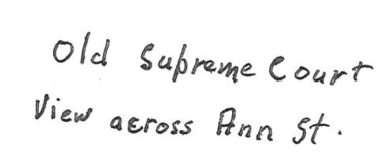 Old Supreme Court
View across Ann St.